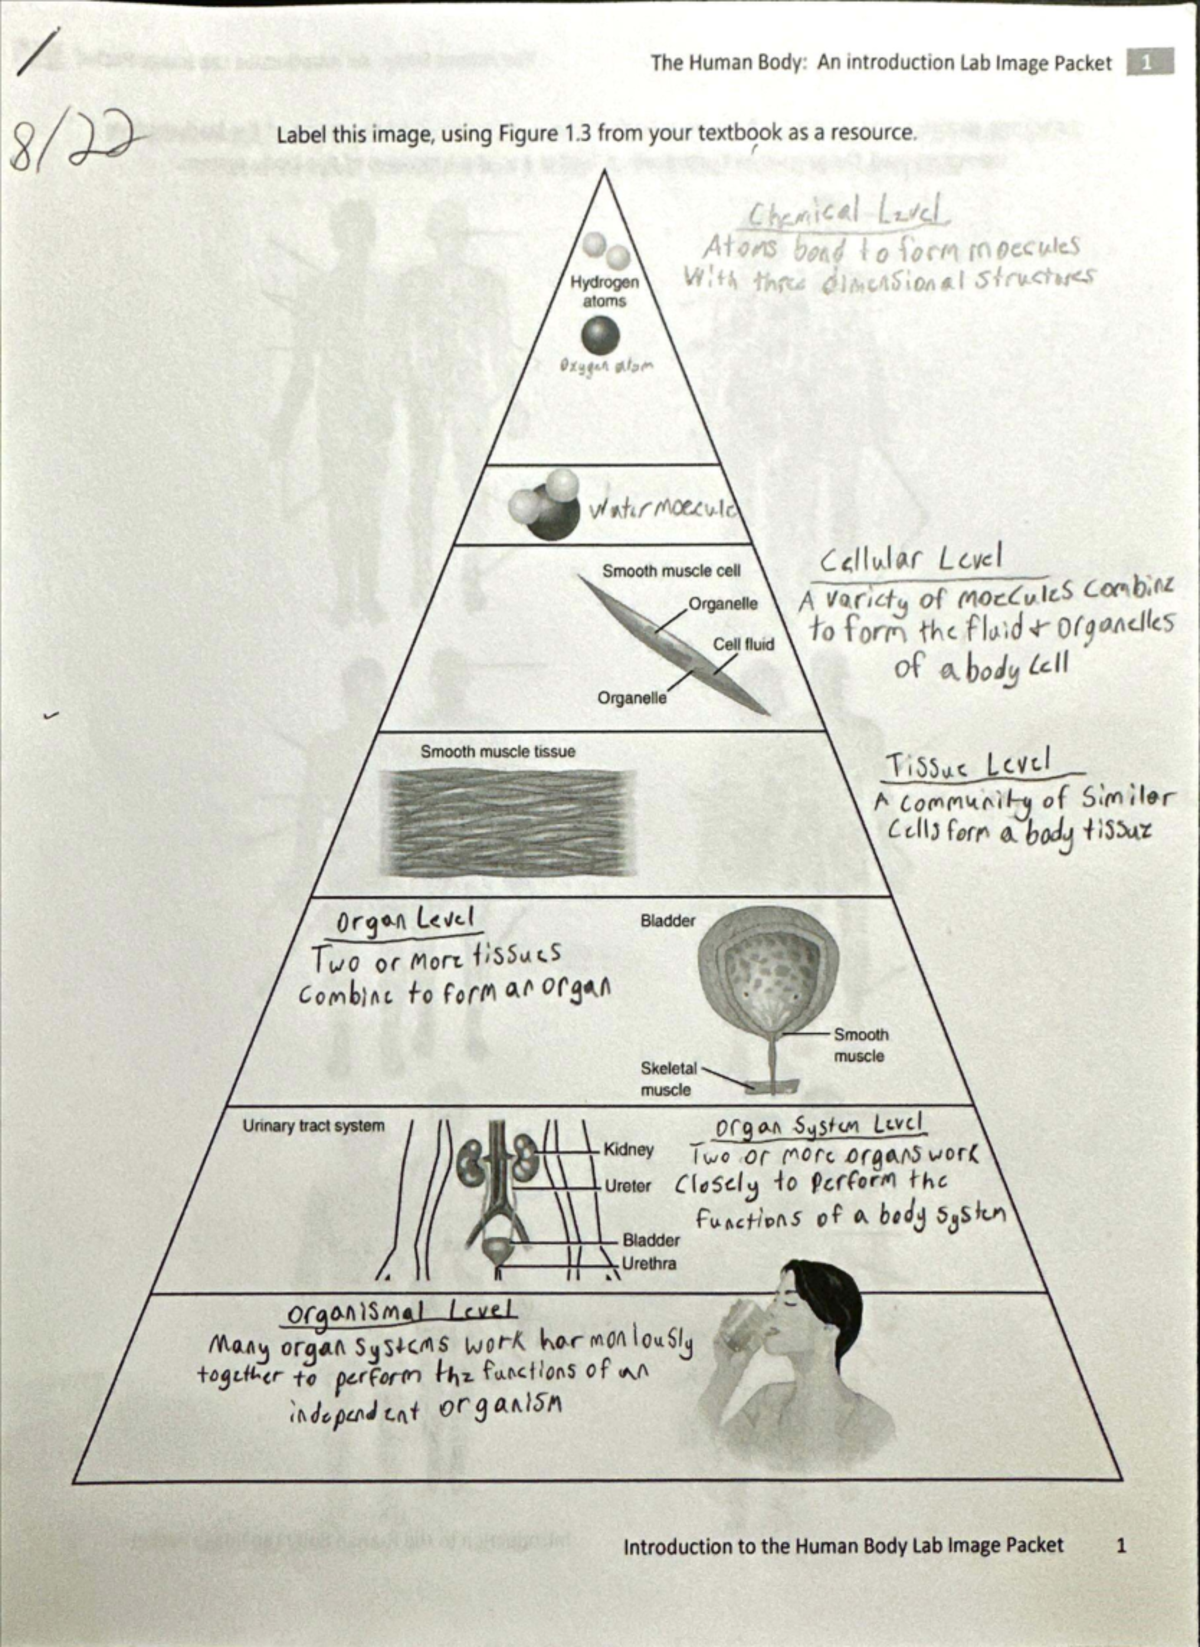 The Human Body: An introduction Lab Image Packet 1
8/22
Label this image, using Figure 1.3 from your textbook as a resource.
Chemical Level
Atoms bond to form moecules
With three dimensional structures
Hydrogen
atoms
Oxygen atom
Water moecule
Smooth muscle cell
Organelle
Cell fluid
Organelle
Cellular Level
A variety of moecules combine
to form the fluid + organelles
of a body cell
Smooth muscle tissue
Tissue Level
A community of similar
cells form a body tissue
Organ Level
Two or more tissues
combine to form an organ
Bladder
Smooth
muscle
Skeletal
muscle
Urinary tract system
Kidney
Ureter
Bladder
Urethra
Organ System Level
Two or more organs work
closely to perform the
functions of a body system
Organismal Level
Many organ systems work harmoniously
together to perform the functions of an
independent organism
Introduction to the Human Body Lab Image Packet 1